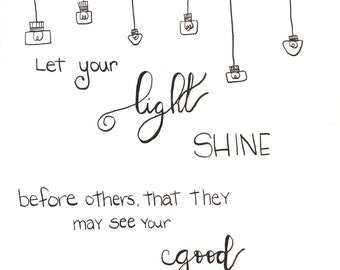 Let your
light
SHINE
before others, that they
may see your
good